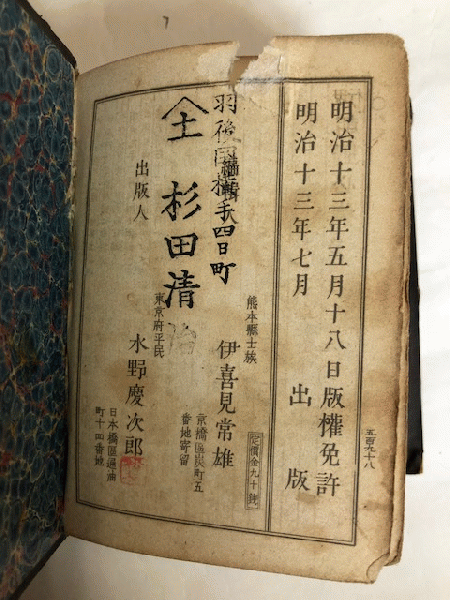 五百六十八
明治十三年五月十八日版權免許
明治十三年七月 出版
定價金九十錢
編輯人
熊本縣士族
伊喜見常雄
京橋區炭町五
番地寄留
羽後国横手四日町
𠆢土 杉田清
出版人
東京府平民
水野慶次郎
日本橋區通油
町十四番地